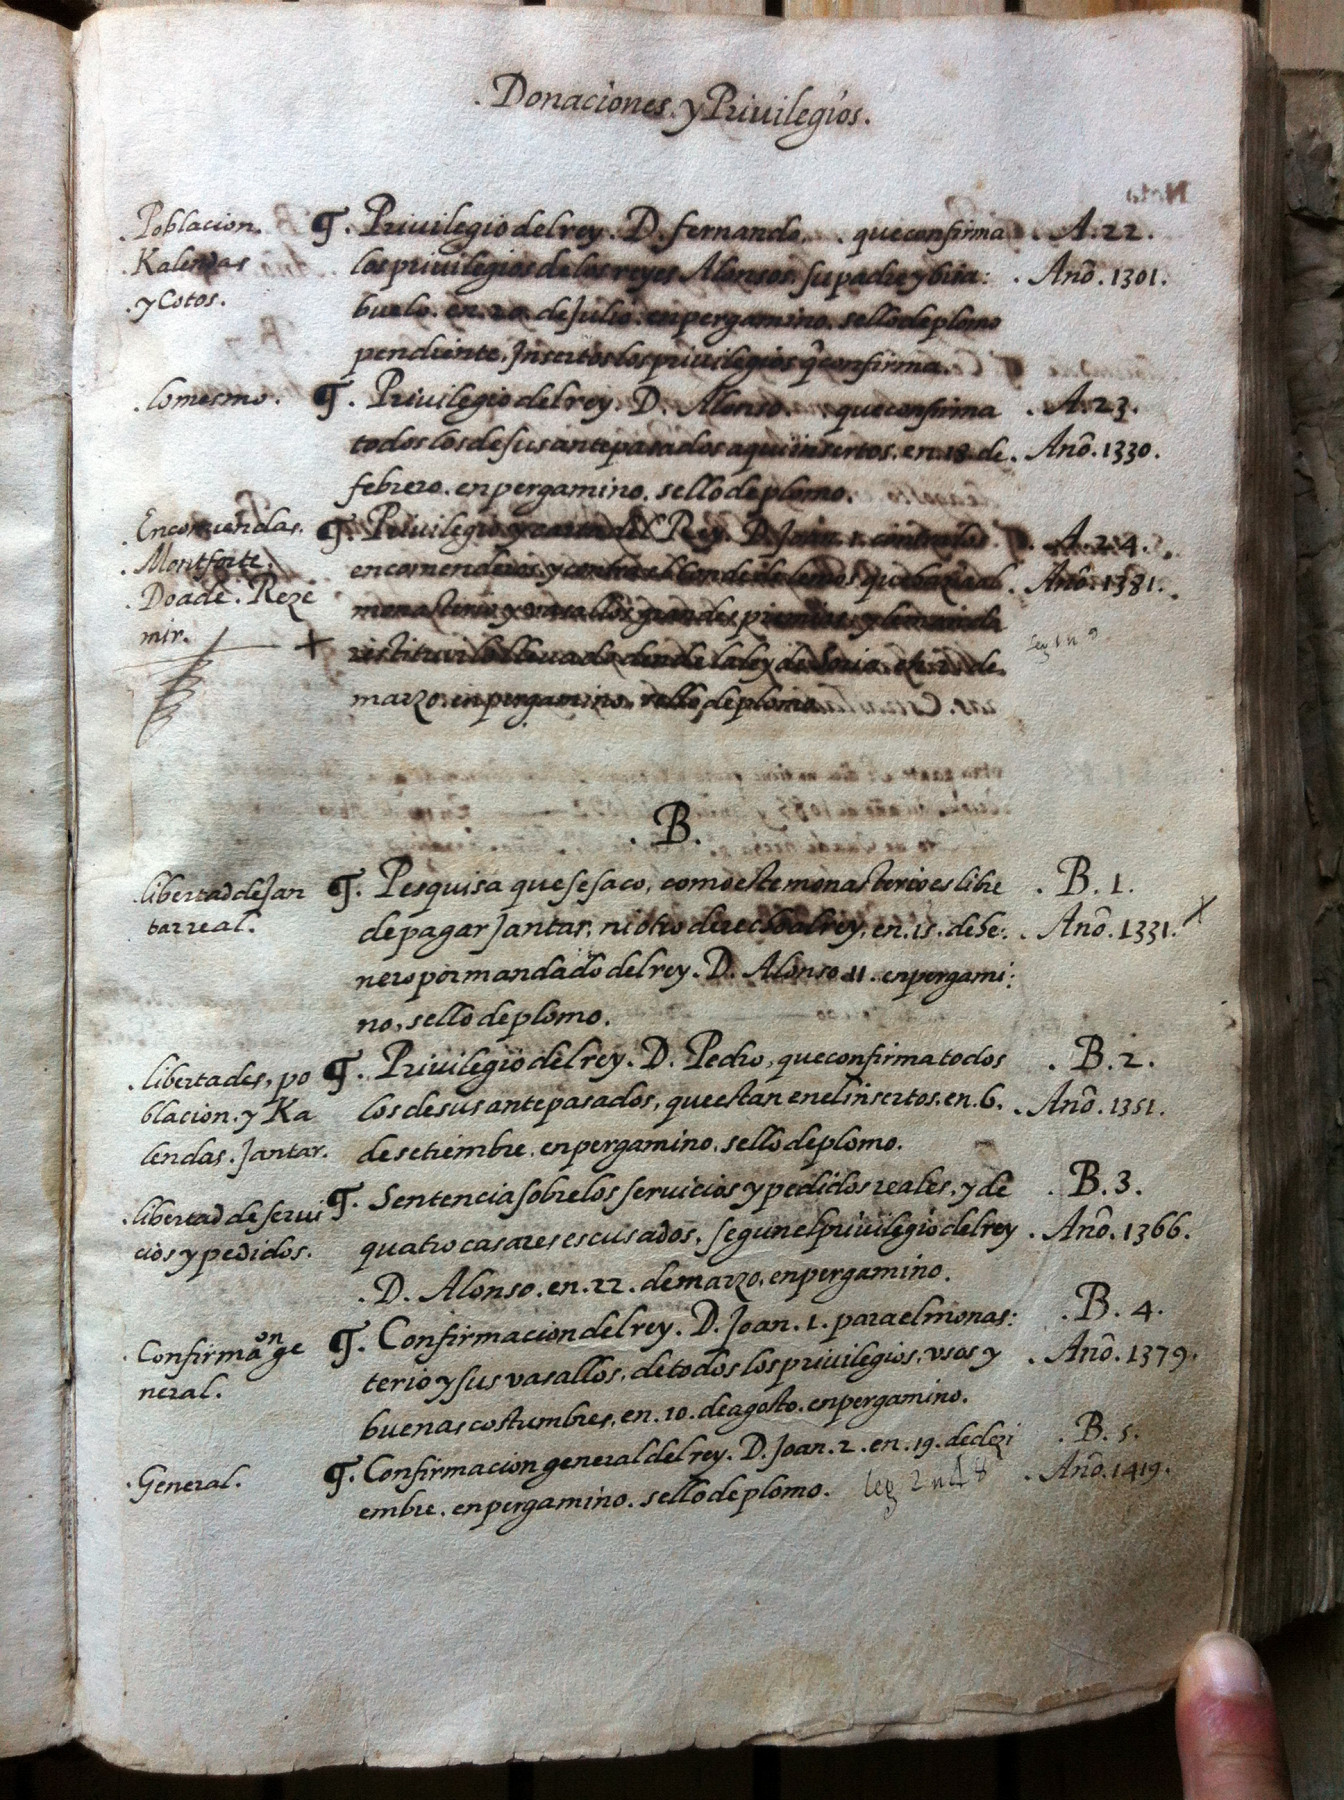 .Donaciones.yPrivilegios.
.Poblacion.
.Kalendas
.y Cotos.
¶. Privilegio del rey. D. fernando. . que confirma
los privilegios de los reyes Alonsos. su padre y bisa:
buelo. en. 20. de Julio. en pergamino. sello de plomo
pendiente. Insertos los privilegios q̃ confirma.
. A. 22.
. Anõ. 1301.
.lo mesmo.
¶. Privilegio del rey. D. Alonso. que confirma
todos los de sus antepasados aqui insertos. en. 18. de
febrero. en pergamino. sello de plomo.
. A. 23.
. Anõ. 1330.
.Encomiendas.
.Montforte.
.Doade. Reze
mir.
¶. Privilegio y carta del Rey. D. Joan. 1. contra los
encomenderos y contra el conde de lemos que hazia al
monasterio y vasallos grandes premias, y le manda
restituir lo llevado dende la ley de Soria. en. 21. de
marzo. en pergamino. sello de plomo.
. A. 24.
. Anõ. 1381.
leg 1 n 9
. B.
.libertad de Jan
tar real.
¶. Pesquisa que se saco, como este monasterio es libre
de pagar Jantar, ni otro derecho al rey, en. 15. de he:
nero por mandado del rey. D. Alonso. 11. en pergami:
no, sello de plomo.
. B. 1.
. Anõ. 1331.
.libertades, po
blacion. y Ka
lendas. Jantar.
¶. Privilegio del rey. D. Pedro, que confirma todos
los de sus antepasados, que estan en el insertos. en. 6.
de setiembre. en pergamino. sello de plomo.
. B. 2.
. Anõ. 1351.
.libertad de servi
cios y pedidos.
¶. Sentencia sobre los servicios y pedidos reales, y de
quatro casares escusados, segun el privilegio del rey
. D. Alonso. en. 22. de marzo. en pergamino.
. B. 3.
. Anõ. 1366.
.Confirmaon ge
neral.
¶. Confirmacion del rey. D. Joan. 1. para el monas:
terio y sus vasallos, de todos los privilegios, vsos y
buenas costumbres, en. 10. de agosto. en pergamino.
. B. 4.
. Anõ. 1379.
.General.
¶. Confirmacion general del rey. D. Joan. 2. en. 19. de dezi
embre. en pergamino. sello de plomo. leg 2 n 18
. B. 5.
. Anõ. 1419.